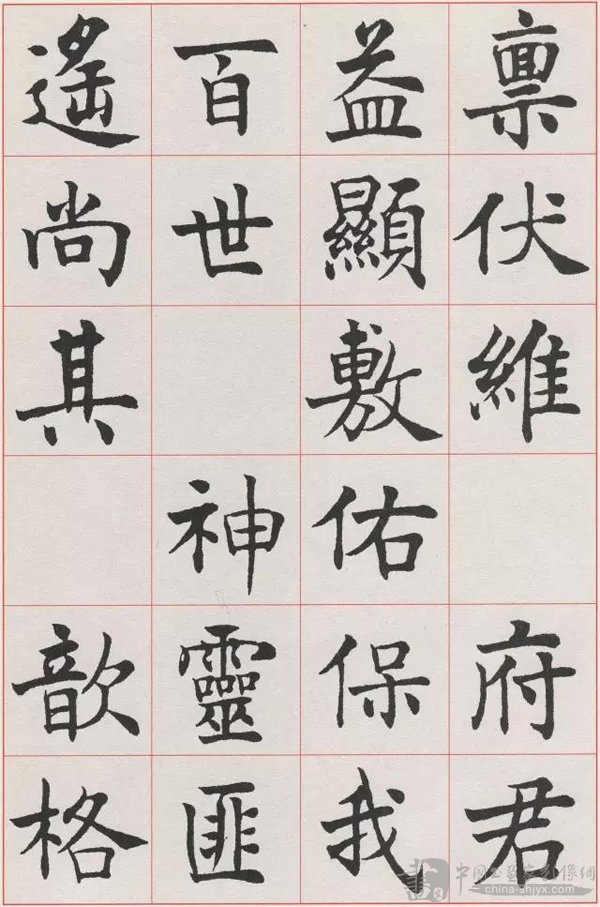 禀伏維 府君
益顯敷佑保我
百世 神靈匪
遙尚其 歆格
中国书画家影像網
china-shjyx.com